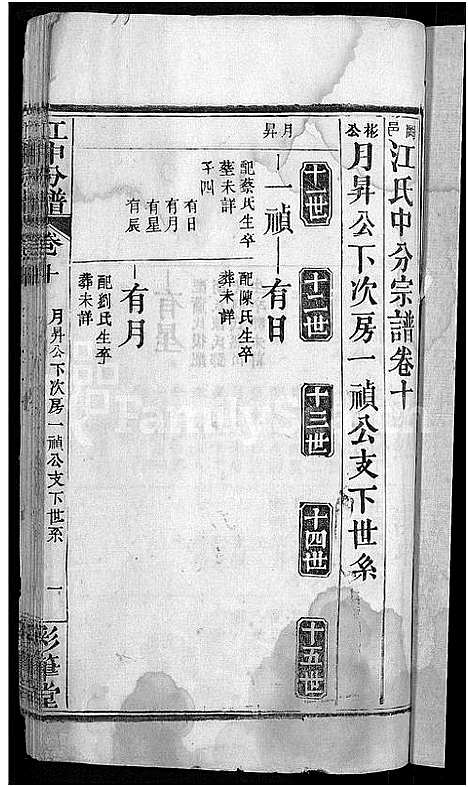 闽邑江氏中分宗譜卷十
彬公月昇公下次房一禎公支下世系
十一世
十二世
十三世
十四世
十五世
月昇
一禎
有日
記蔡氏生卒
塟未詳
子四
有日
有月
有星
有辰
配陳氏生卒
葬未詳
有月
配劉氏生卒
葬未詳
江中分譜
卷十
月昇公下次房一禎公支下世系
一
彩筆堂